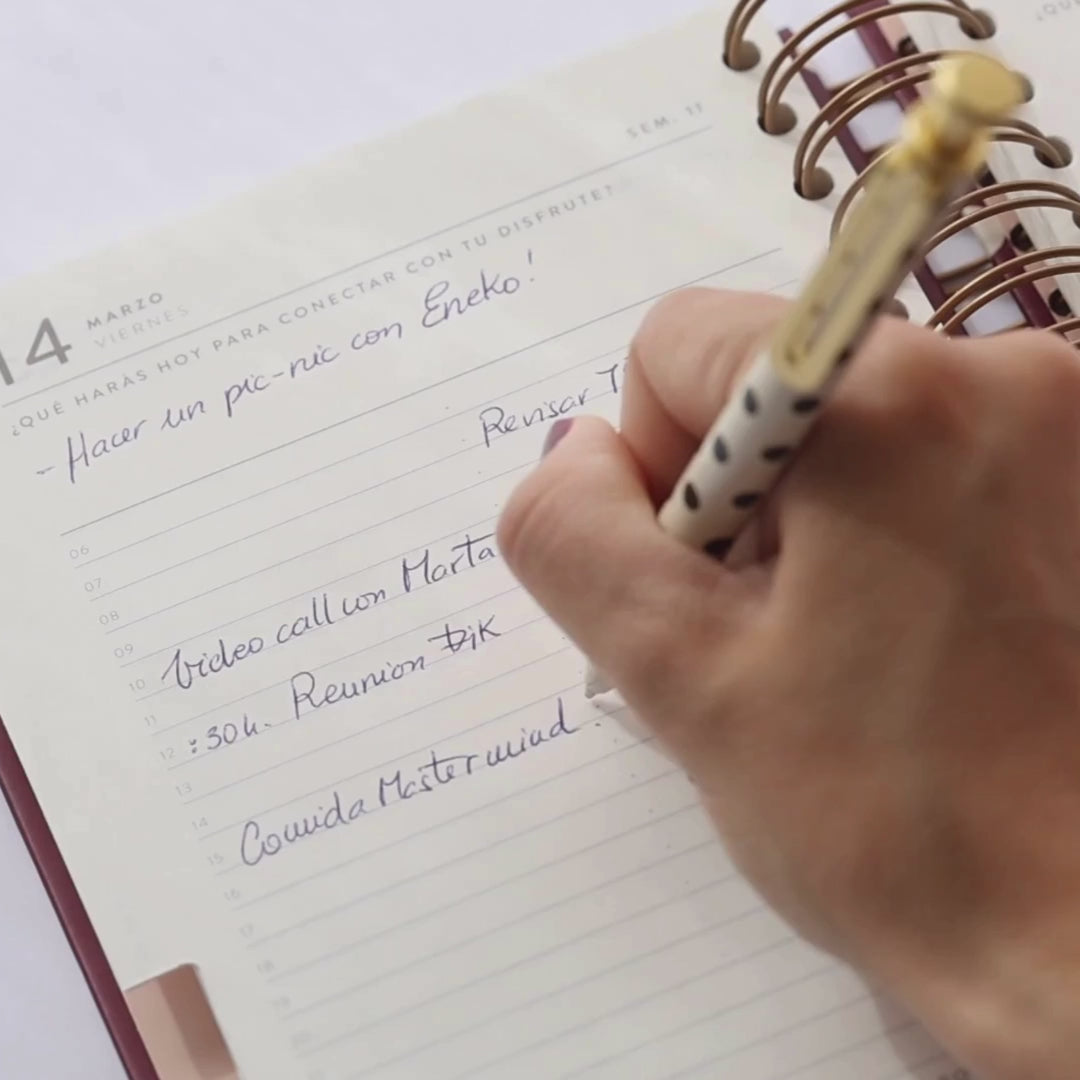 SEM. 11
14 MARZO
VIERNES
¿QUÉ HARÁS HOY PARA CONECTAR CON TU DISFRUTE?
- Hacer un pic-nic con Eneko!
06
Revisar
07
08
09
10 Video call con Marta
11
12 :30h. Reunion
13
14
15 Comida Mastermind.
16
17
18
19
20